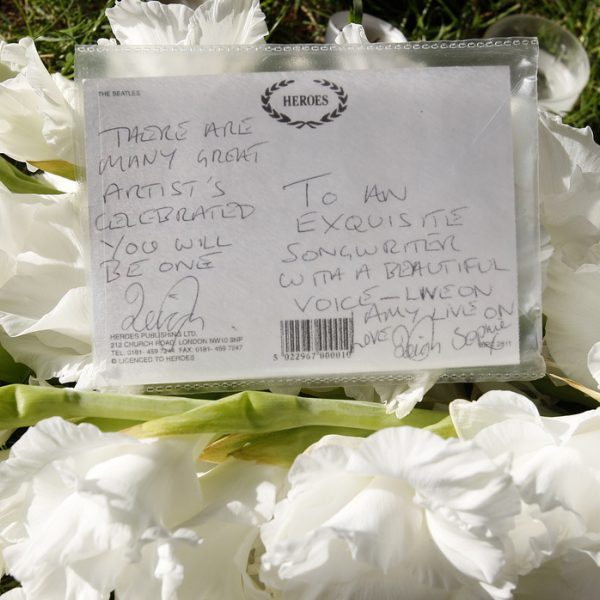 THE BEATLES
HEROES
THERE ARE
MANY GREAT
ARTIST'S
CELEBRATED
YOU WILL
BE ONE
TO AN
EXQUISITE
SONGWRITER
WITH A BEAUTIFUL
VOICE - LIVE ON
AMY LIVE ON
LOVE
HEROES PUBLISHING LTD.
212 CHURCH ROAD, LONDON NW10 9NP
TEL: 0181- 459 7244 FAX: 0181- 459 7247
© LICENCED TO HEROES
5 022967 000010